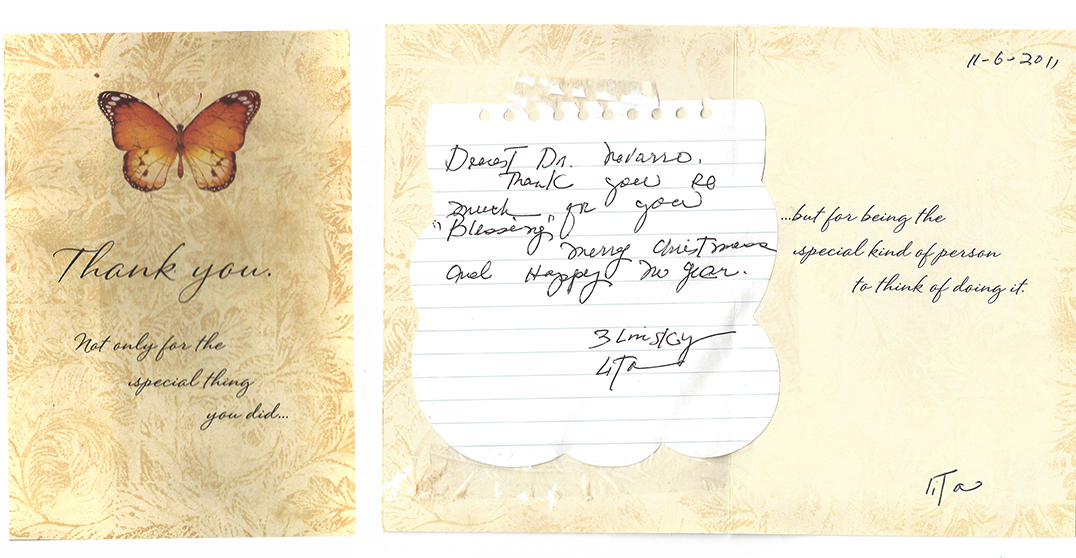 Thank you.
Not only for the
special thing
you did...
11-6-2011
Dearest Dr. Navarro.
Thank you so
much for your
"Blessing"
Merry Christmas
and Happy
...but for being the
special kind of person
to think of doing it.
Lita
Lita